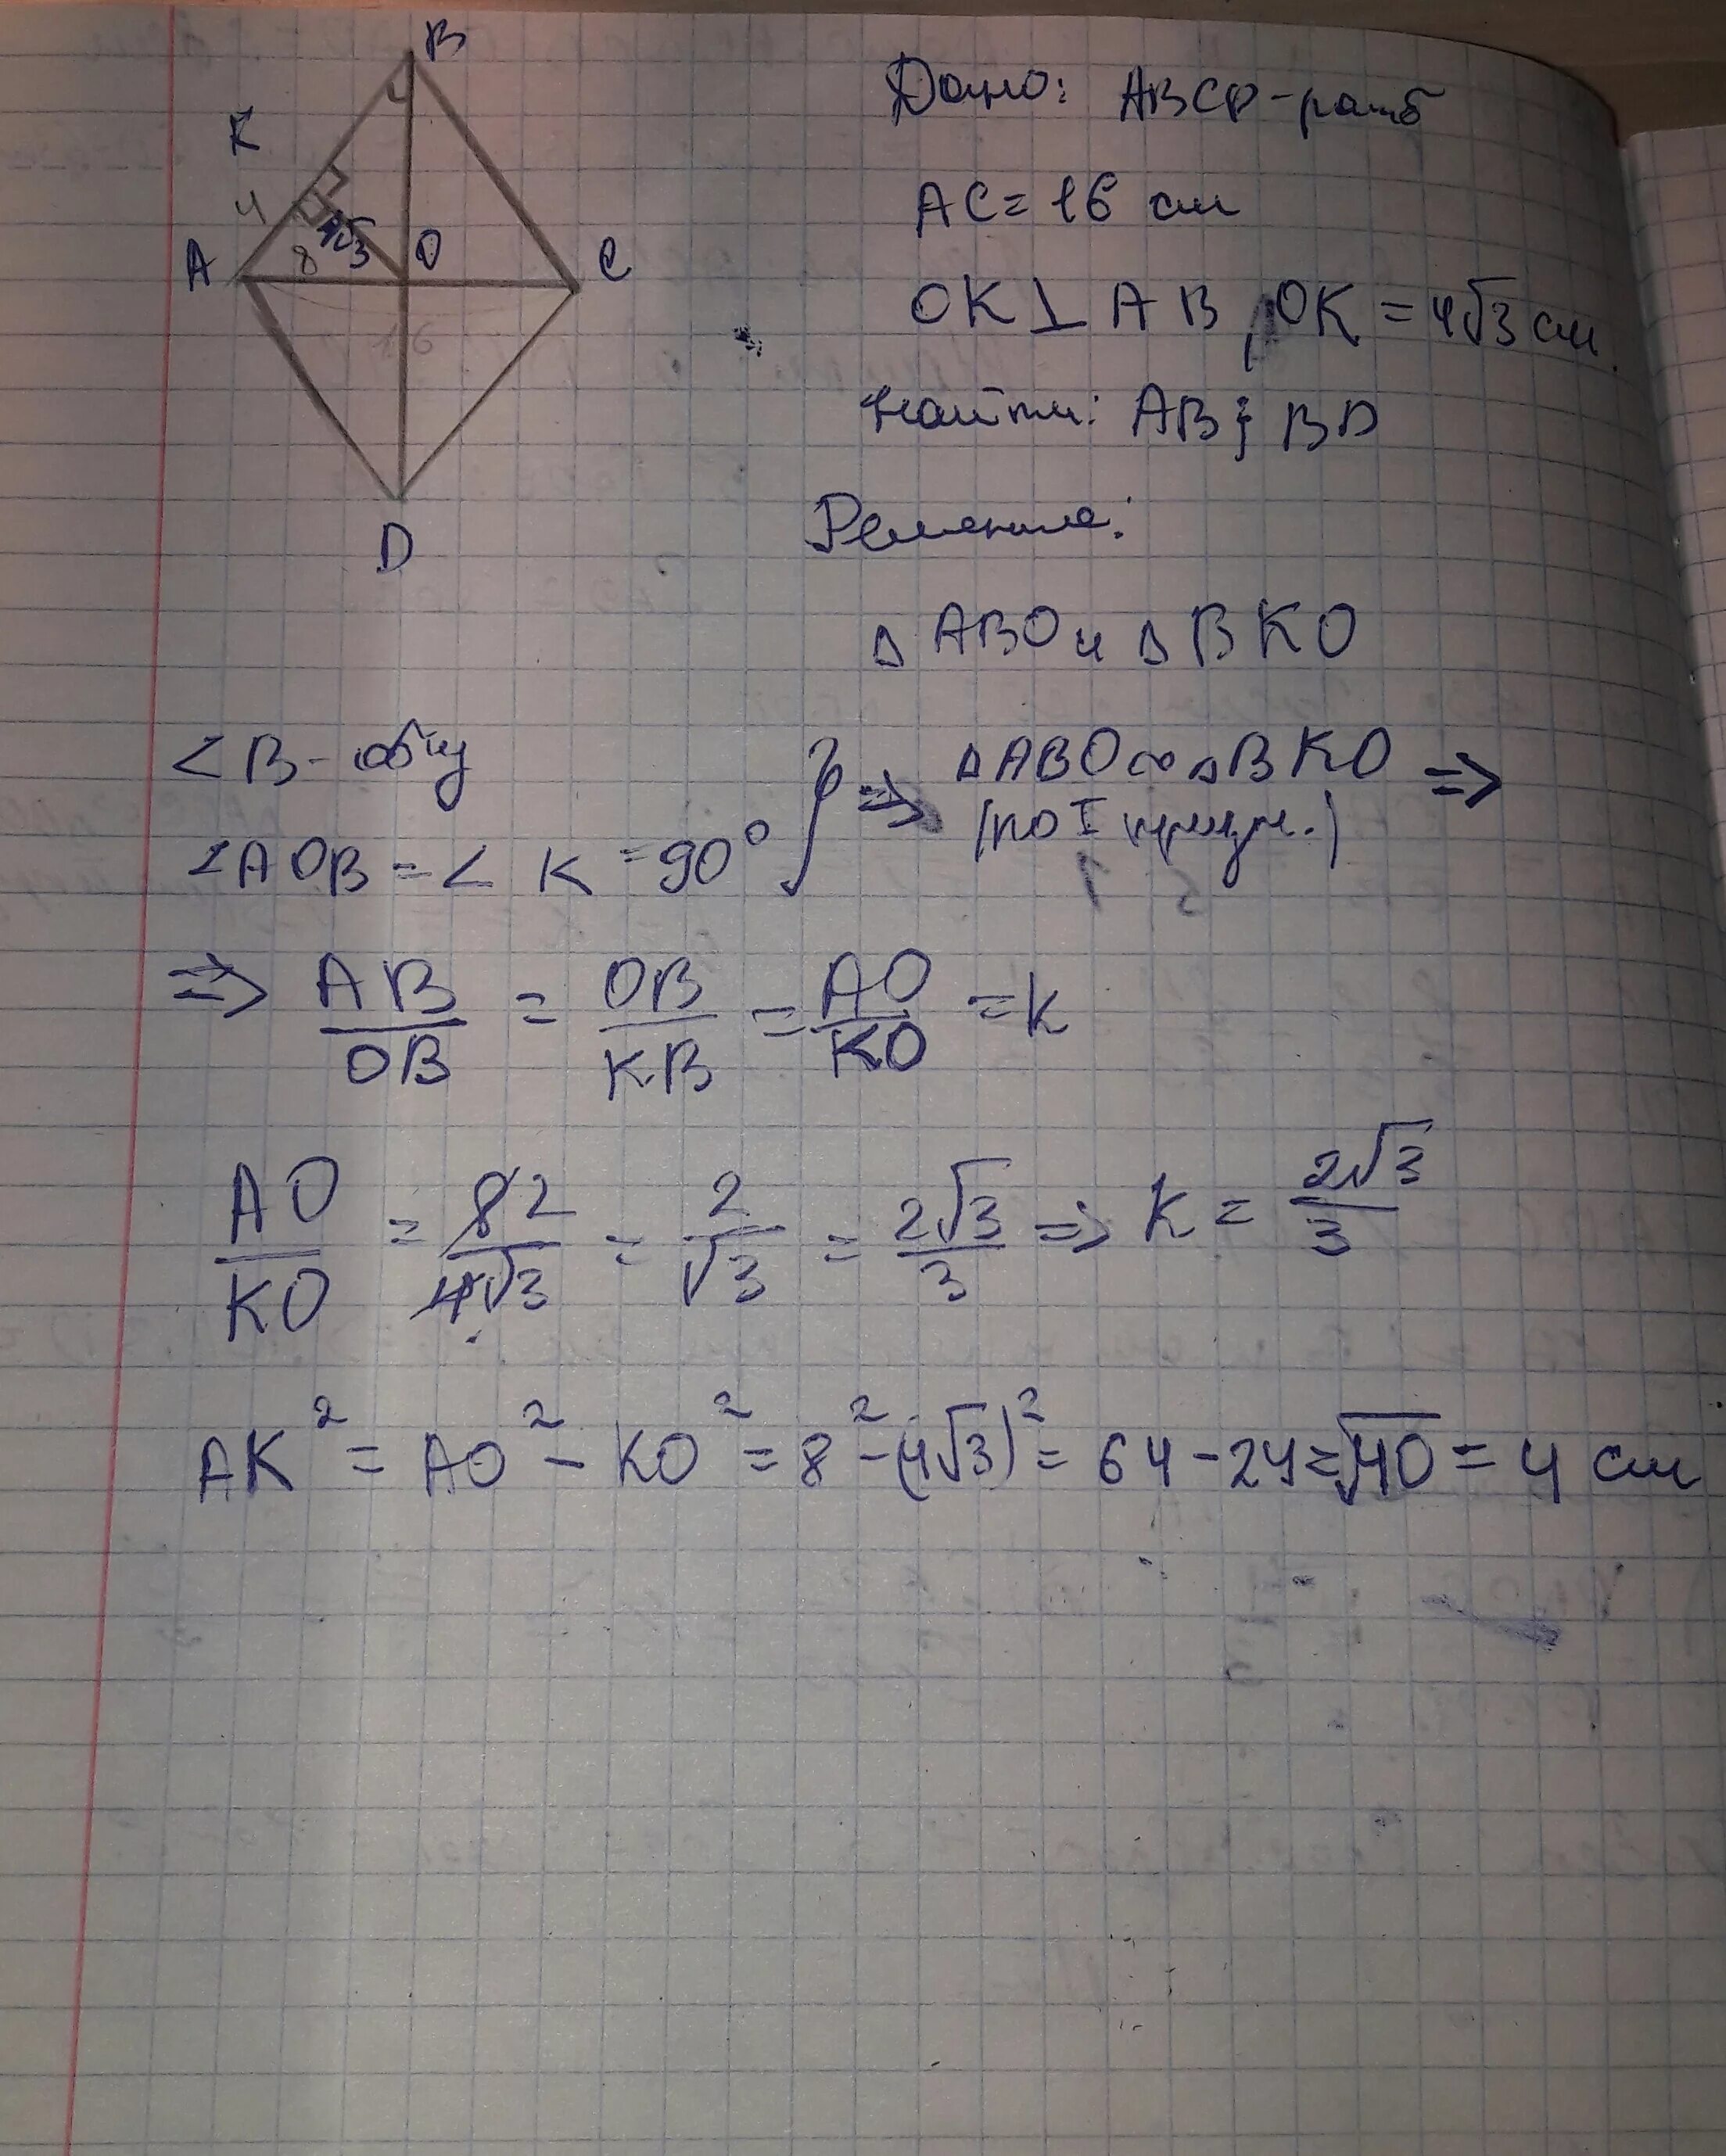 B
K
4
4√3
A
8
O
C
16
D
Дано: ABCD - ромб
AC = 16 см
OK ⊥ AB, OK = 4√3 см.
Найти: AB; BD
Решение:
△ ABO и △ BKO
∠B - общ
∠AOB = ∠ K = 90° } => △ABO ∞ △BKO =>
(по I призн.)
=> AB/OB = OB/KB = AO/KO = k
AO/KO = 8 2/4√3 = 2/√3 = 2√3/3 => K = 2√3/3
AK² = AO² - KO² = 8² - (4√3)² = 64 - 24 = √40 = 4 см